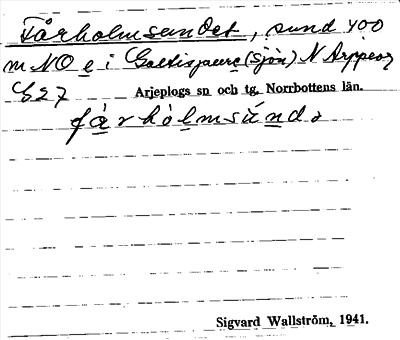 Fårholmsundet, sund 400
m NO e i Galtisjaure (sjön) N Arjeplog
C27 Arjeplogs sn och tg. Norrbottens län.
fårhòlmsúndə
Sigvard Wallström, 1941.